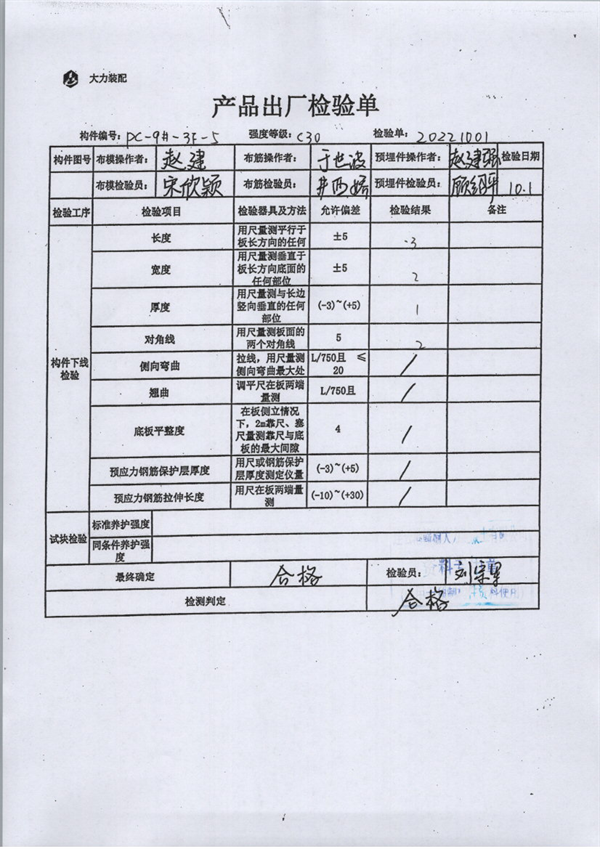 大力装配
产品出厂检验单
构件编号: PC-9#-3F-5 强度等级: C30 检验单: 20221001
构件图号 布模操作者: 赵建 布筋操作者: 于世波 预埋件操作者: 赵建强 检验日期
布模检验员: 宋欣颖 布筋检验员: 预埋件检验员: 10.1
检验工序 检验项目 检验器具及方法 允许偏差 检验结果 备注
构件下线检验
长度 用尺量测平行于板长方向的任何 ±5 3
宽度 用尺量测垂直于板长方向底面的任何部位 ±5 2
厚度 用尺量测与长边竖向垂直的任何部位 (-3)~(+5) 1
对角线 用尺量测板面的两个对角线 5 2
侧向弯曲 拉线，用尺量测侧向弯曲最大处 L/750且 ≤20 /
翘曲 调平尺在板两端量测 L/750且 /
底板平整度 在板侧立情况下，2m靠尺、塞尺量测靠尺与底板的最大间隙 4 /
预应力钢筋保护层厚度 用尺或钢筋保护层厚度测定仪量 (-3)~(+5) /
预应力钢筋拉伸长度 用尺在板两端量测 (-10)~(+30) /
试块检验 标准养护强度
同条件养护强度
最终确定 合格 检验员:
检测判定 合格